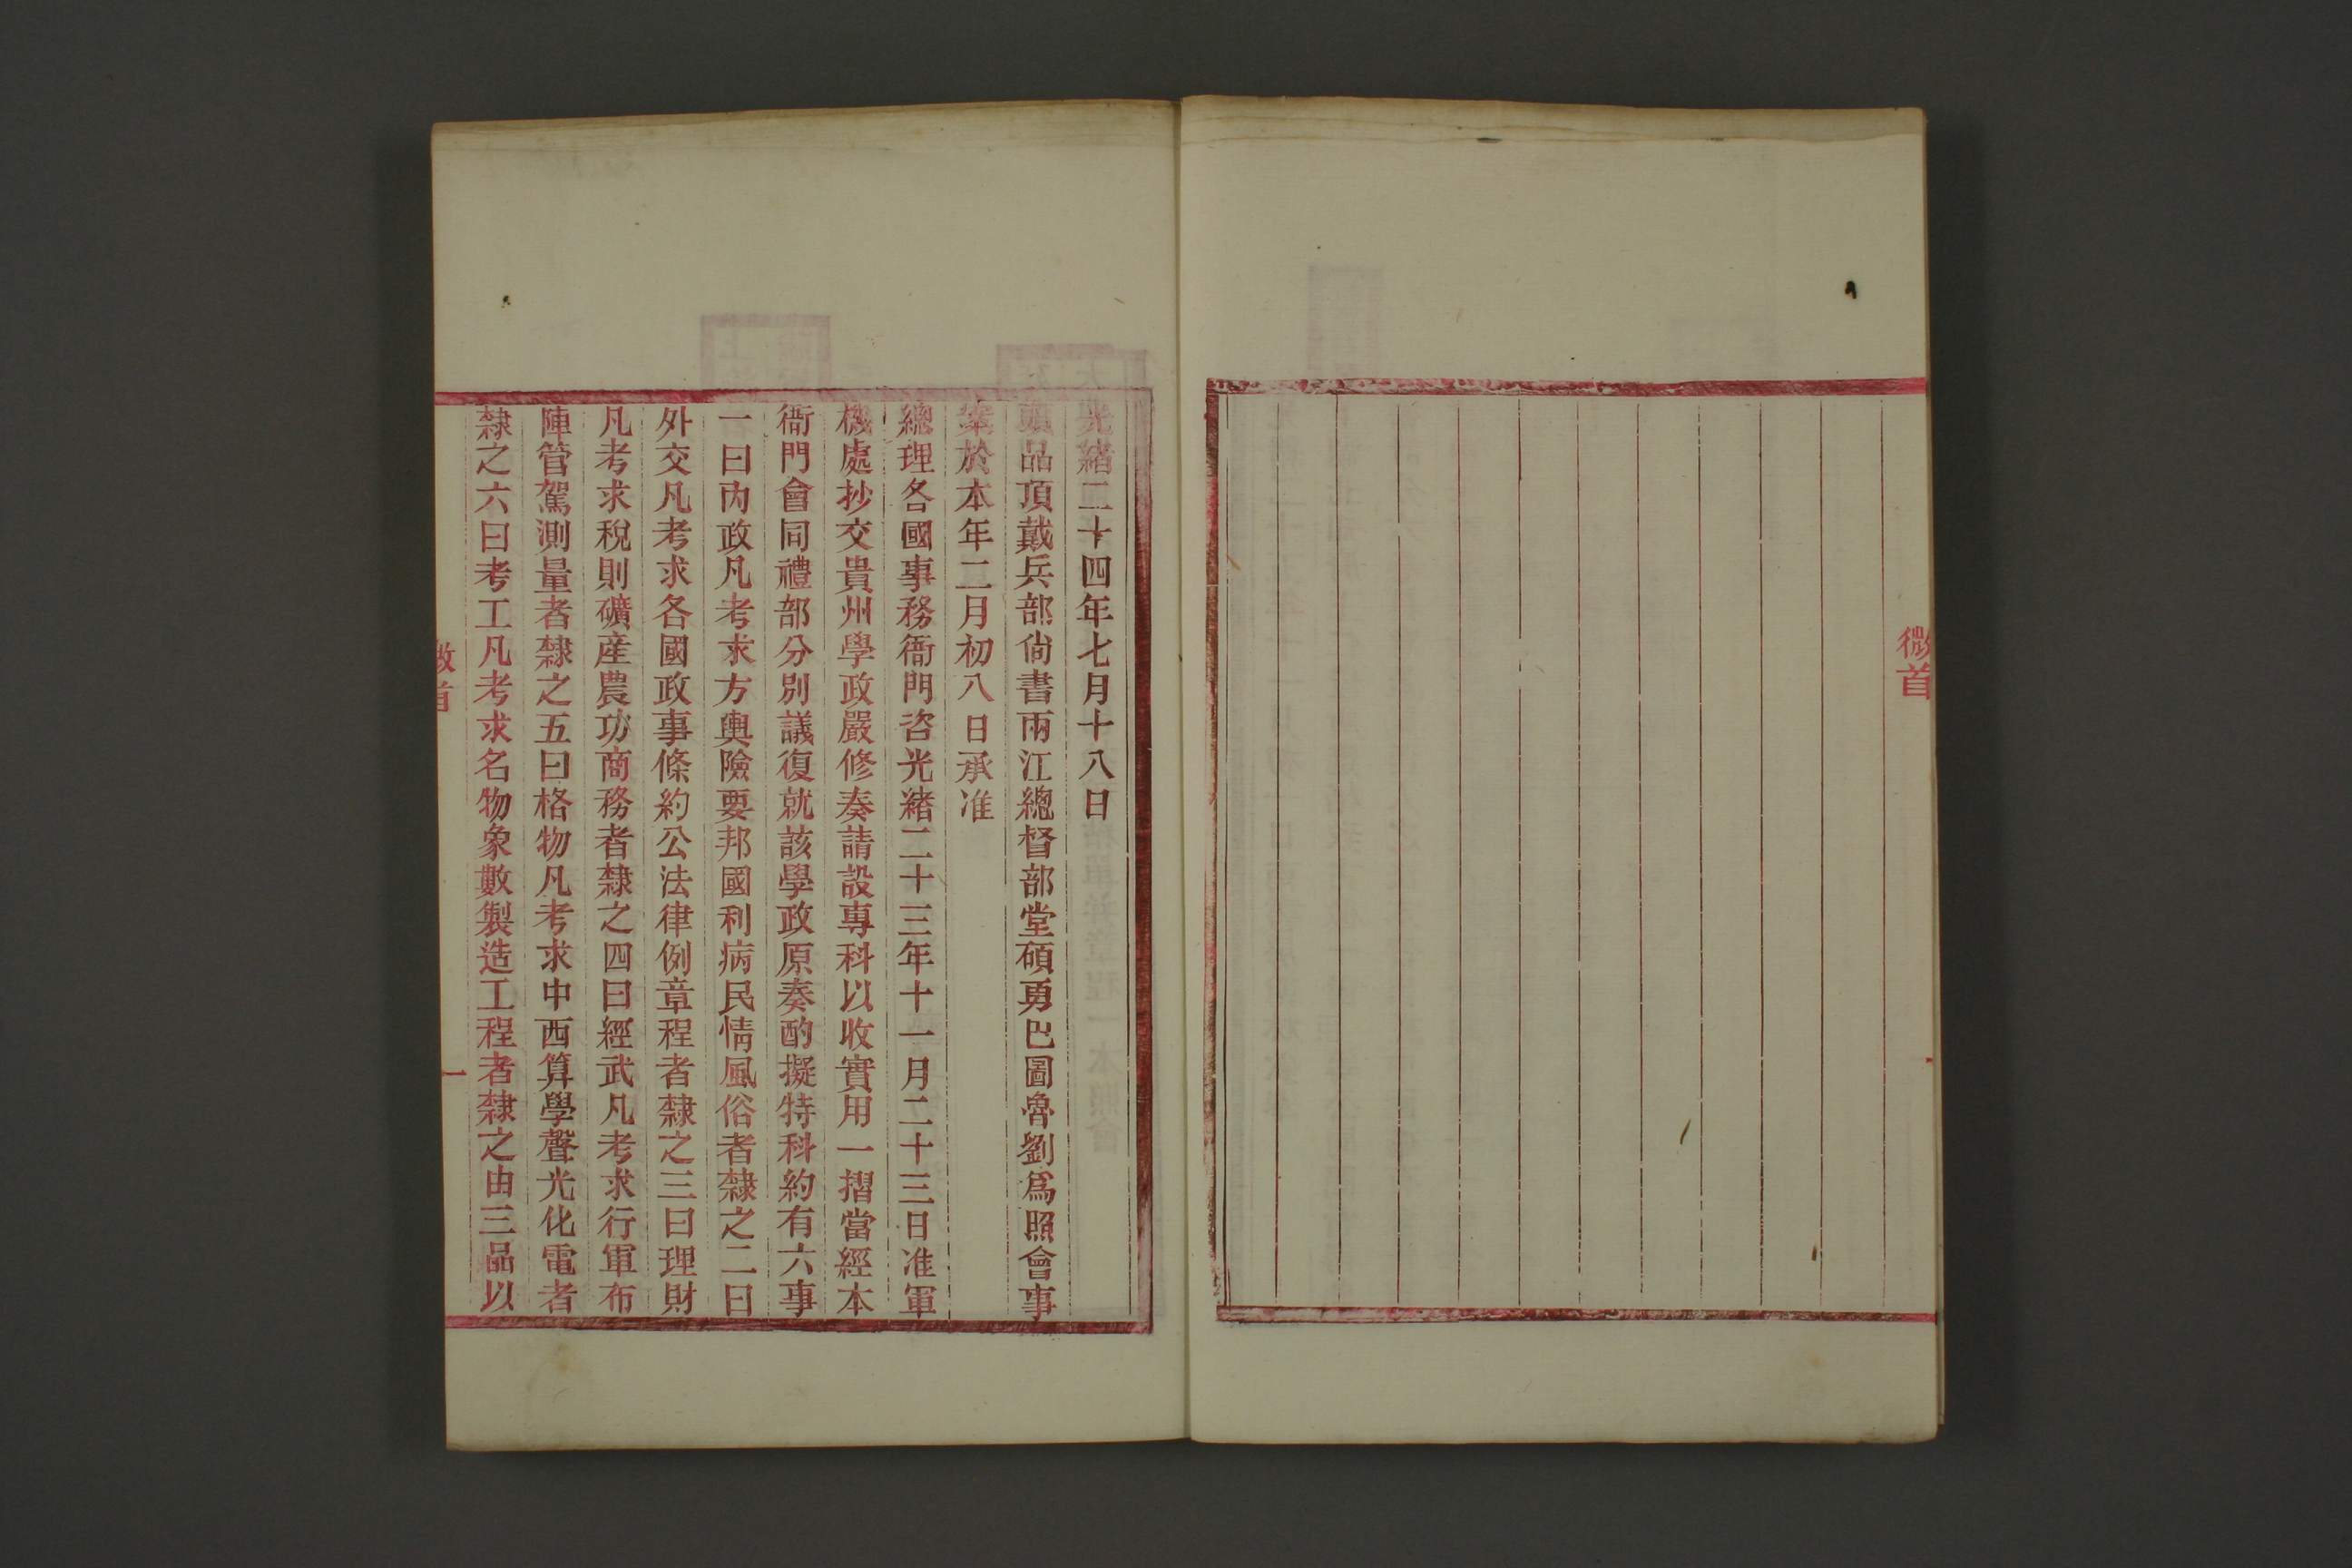 微首
光緒二十四年七月十八日
頭品頂戴兵部尙書兩江總督部堂碩勇巴圖魯劉爲照會事
案於本年二月初八日承准
總理各國事務衙門咨光緒二十三年十一月二十三日准軍
機處抄交貴州學政嚴修奏請設專科以收實用一摺當經本
衙門會同禮部分別議復就該學政原奏酌擬特科約有六事
一曰內政凡考求方輿險要邦國利病民情風俗者隸之二曰
外交凡考求各國政事條約公法律例章程者隸之三曰理財
凡考求稅則礦産農功商務者隸之四曰經武凡考求行軍布
陣管駕測量者隸之五曰格物凡考求中西算學聲光化電者
隸之六曰考工凡考求名物象數製造工程者隸之由三品以
一